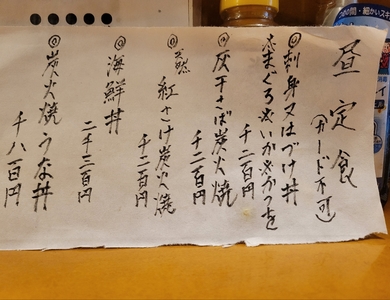 昼定食
(カード不可)
◎刺身又はづけ丼
※まぐろ※いか※かつを
千二百円
◎灰干さば炭火焼
千二百円
◎天然紅さけ炭火焼
千二百円
◎海鮮丼
二千三百円
◎炭火焼うな丼
千八百円